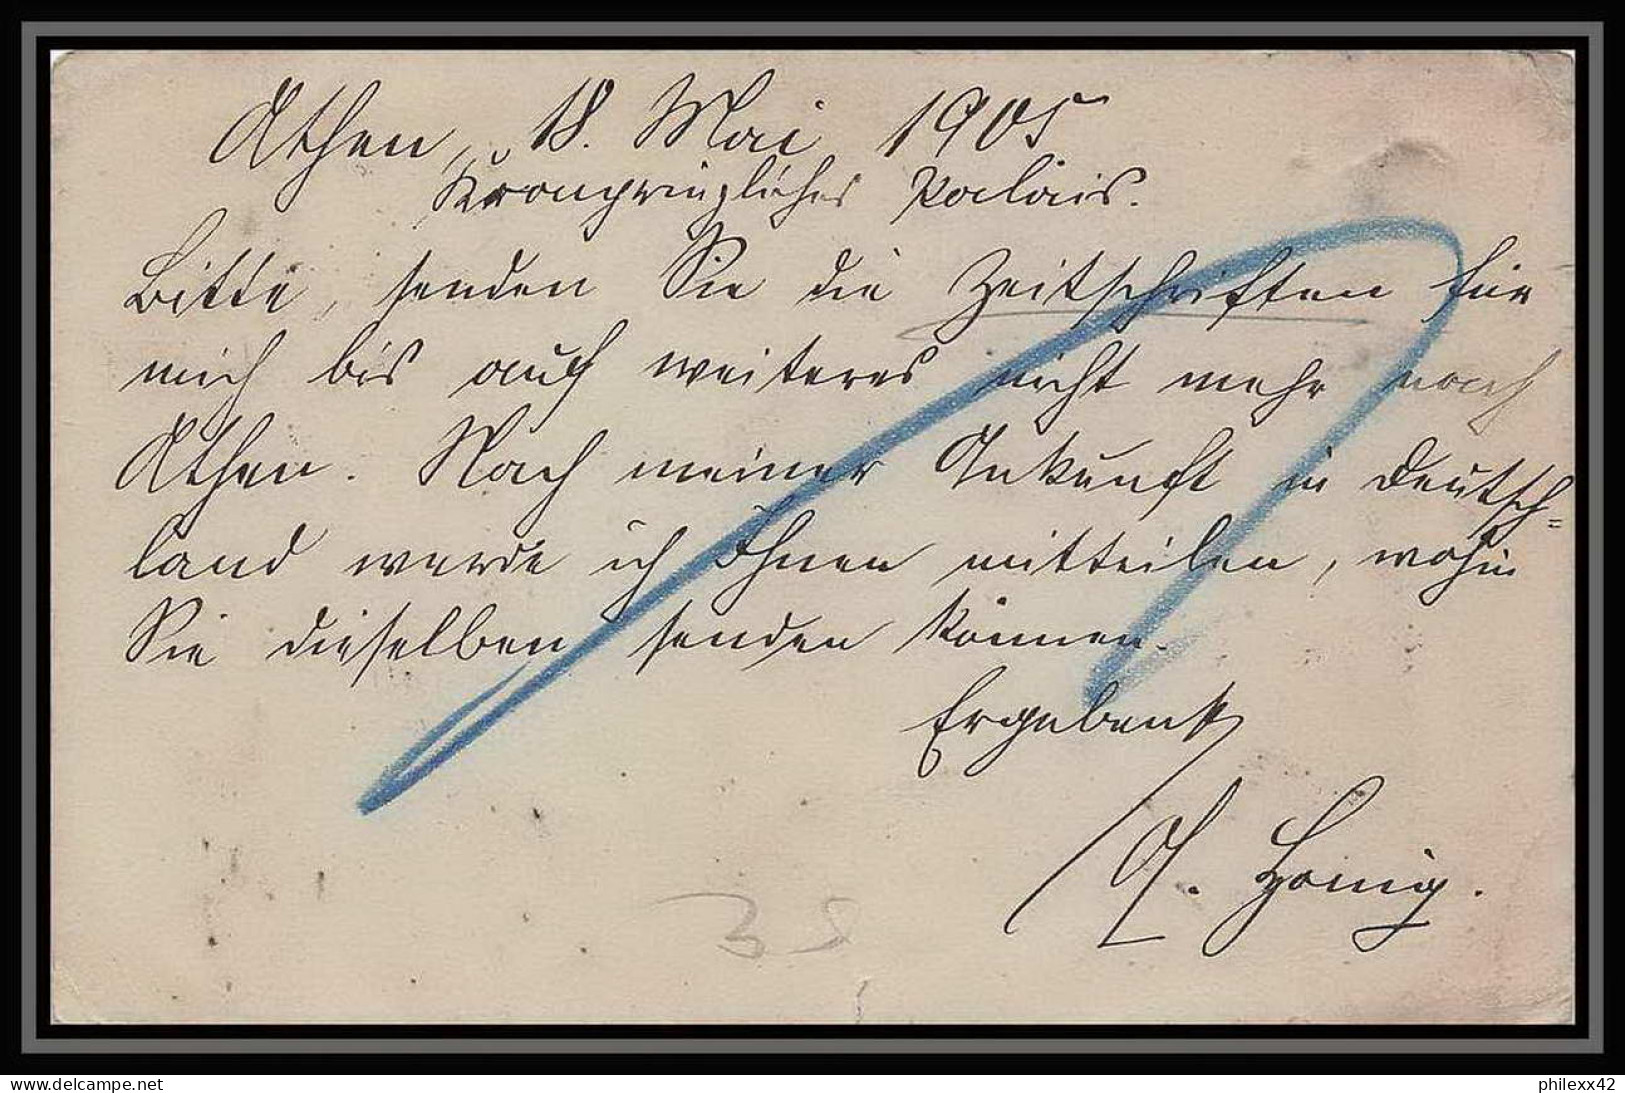 Athen, 18. Mai 1905
Kronprinzliches Palais.
Bitte, senden Sie die Zeitschriften für
mich bis auf weiteres nicht mehr nach
Athen. Nach meiner Ankunft in Deutsch=
land werde ich Ihnen mitteilen, wohin
Sie dieselben senden können.
Ergebenst
A. Honig.
35
philexx42